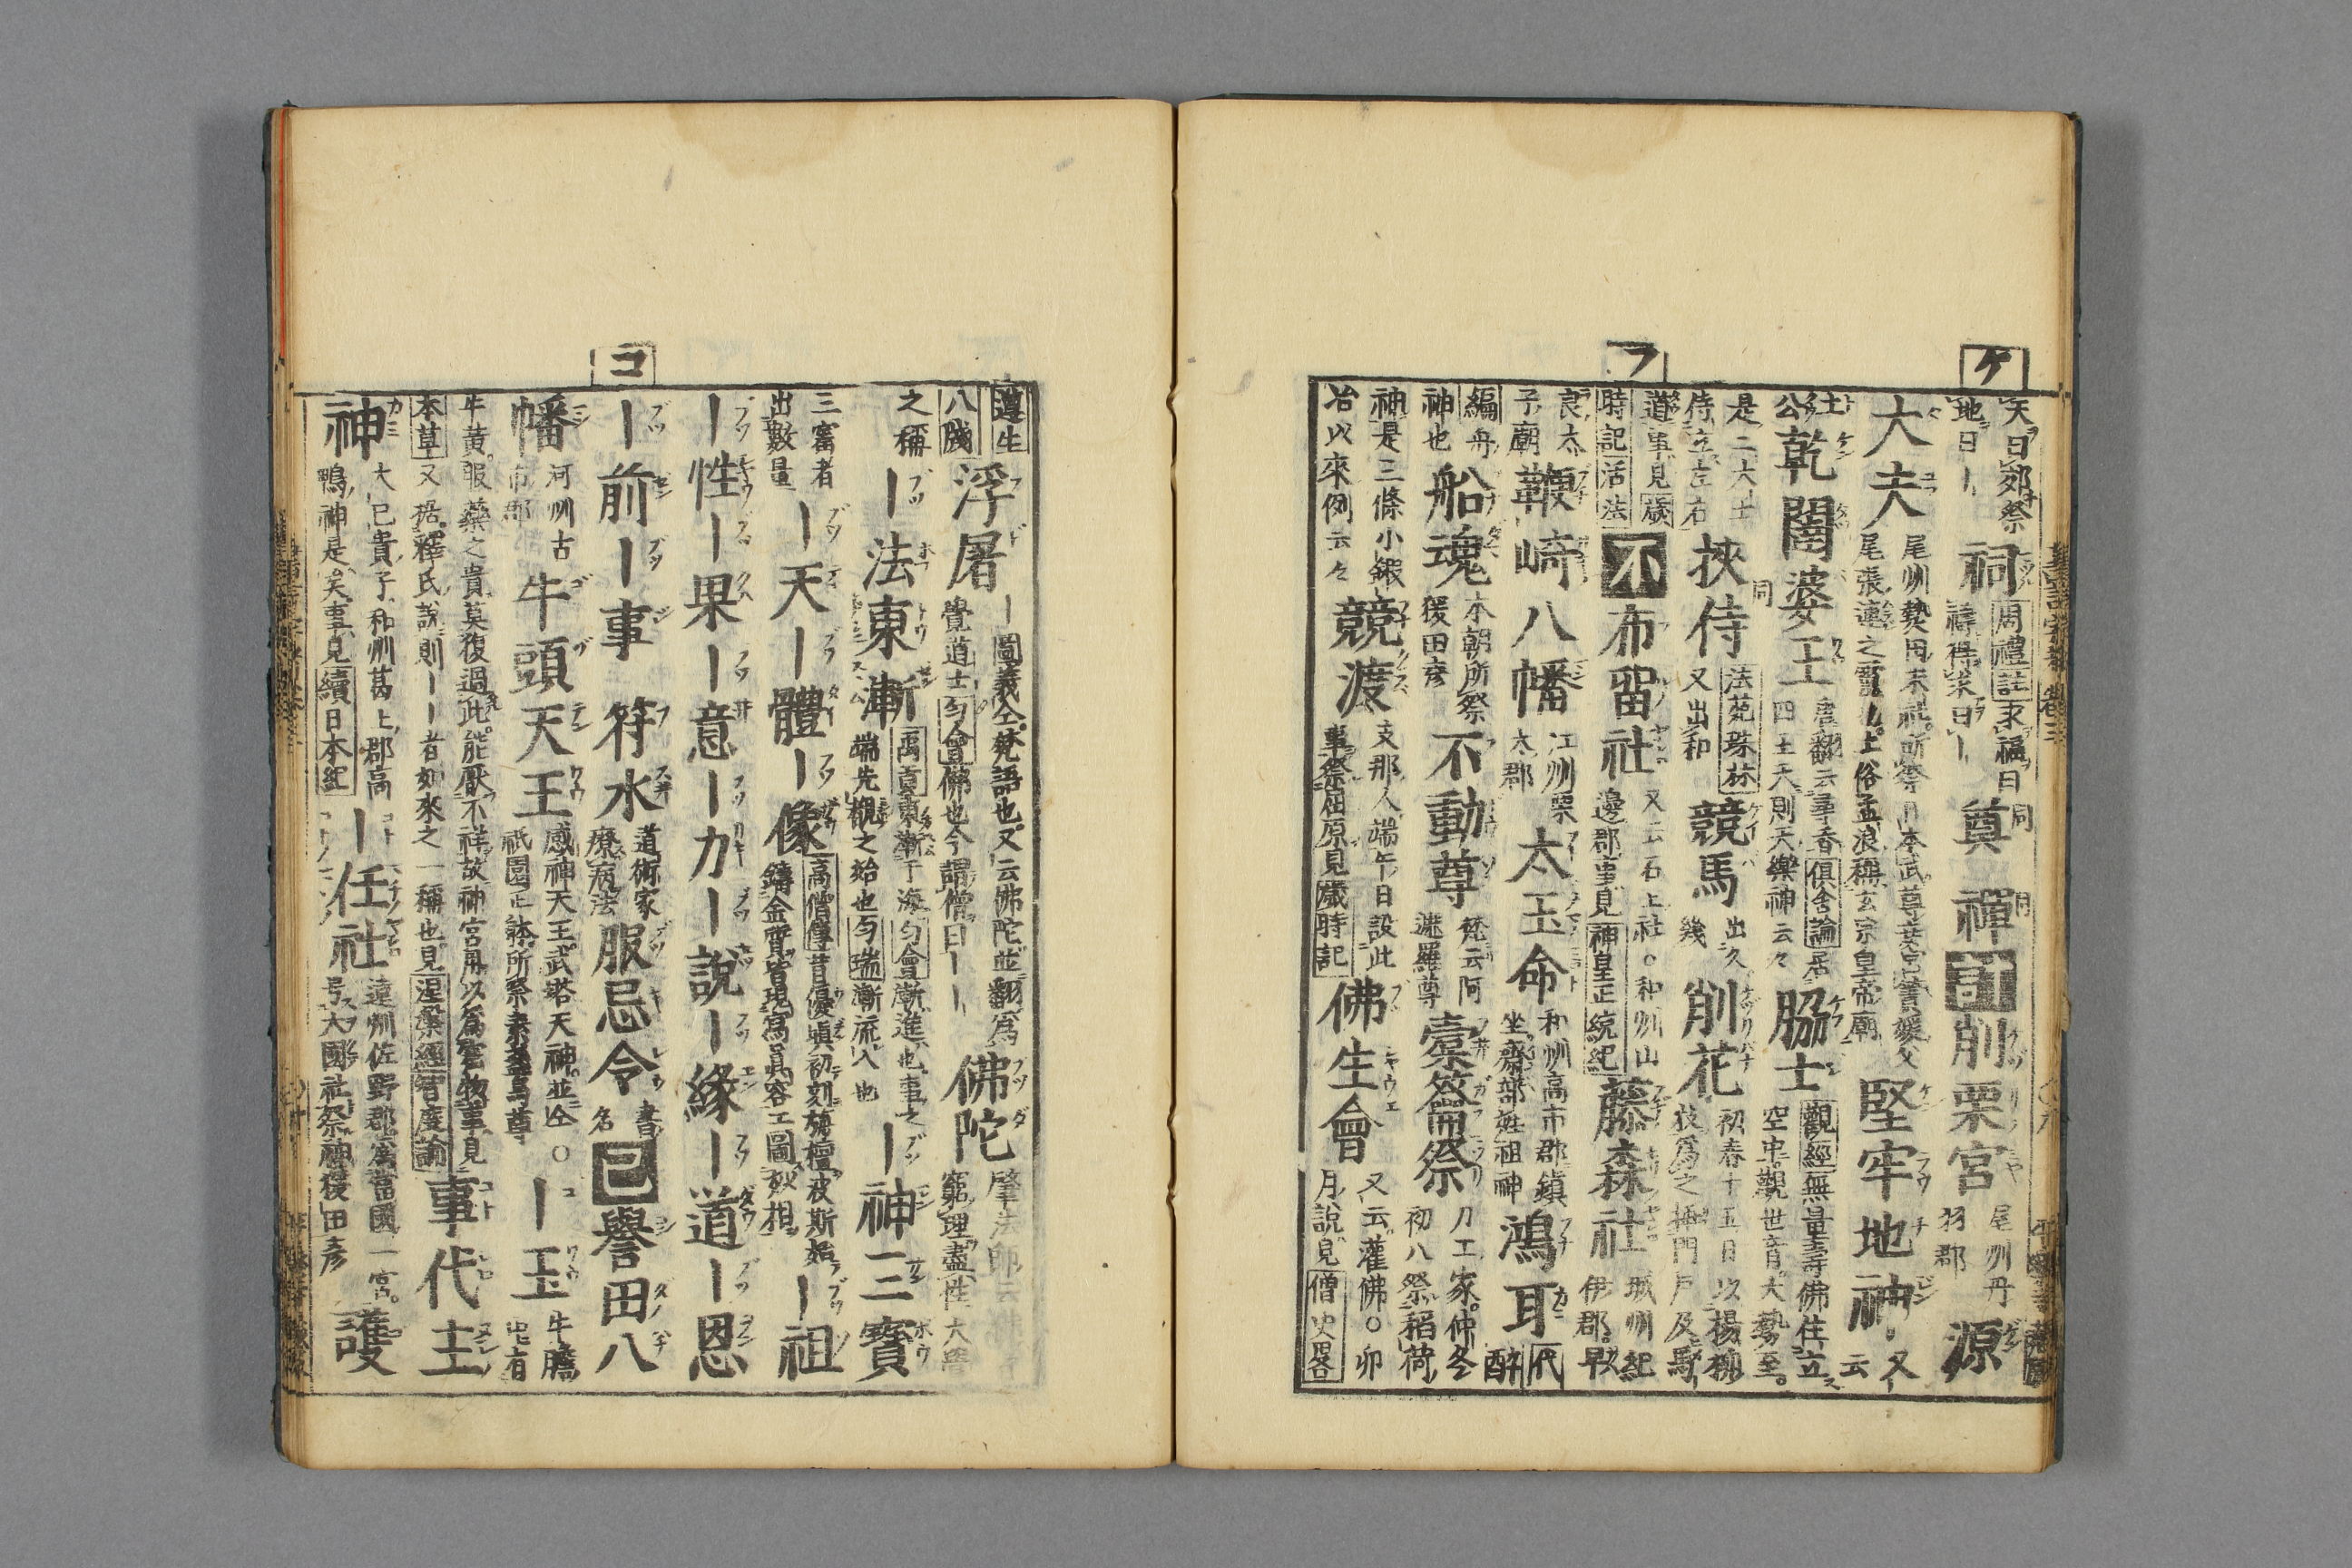 ケ
天曰郊祭
地曰｜
祠
周禮註求福曰
禱得求曰｜
奠
同
禪
同
削栗宮
尾州丹
羽郡
源
大夫
尾州熱田末社所祭日本武尊
尾張連之霊也上俗孟浪稱玄宗皇帝廟
堅牢地神
又
云
土
公
乾闥婆王
唐翻云尋香俱舍論居
四王天則天樂神云々
脇士
觀經無量壽佛住立
空中觀世音大勢至
是二大士
侍立左右
挾侍
同
法苑珠林
又出和
競馬
出久
幾
削花
初春十五日以楊柳
枝爲之插門戸及
フ
道事見歳
時記活法
不
布留社
又云石上社○和州山
邊郡事見神皇正統紀
藤森社
城州紀
伊郡
早
良太
子廟
鞭崎八幡
江州栗
太郡
太玉命
和州高市郡鎮
坐齋部姓祖神
鴻耳
代
醉
編舟
神也
船魂
本朝所祭
猨田彦
不動尊
梵云阿
遮羅尊
槖籥祭
刀工家仲冬
初八祭稻荷
神是三條小鍛
冶以來例云々
競渡
支那人端午日設此
事祭屈原見歲時記
佛生會
又云灌佛○卯
月說見僧史畧
遵生
八牋
浮屠
｜圖義仝梵語也又云佛陀並翻爲
覺道士匀會佛也今謂僧曰｜｜
佛陀
肇法師云佛者
窮理盡性大覺
之稱
｜法東漸
禹貢東漸于海匀會漸進也事之
端先覩之始也匀瑞漸流入也
｜神三寶
三富者
出數量
｜天｜體｜像
高僧傳昔優塡初刻旃檀波斯始
鑄金質皆現寫眞容工圖妙相
｜祖
｜性｜果｜意｜力｜說｜緣｜道｜恩
コ
｜前｜事
符水
道術家
療病法
服忌令
書
名
己
譽田八
幡
河州古
市郡
牛頭天王
感神天王武塔天神並仝○
祇園正躰所祭素盞烏尊
｜玉
牛膓
中有
牛黄服藥之貴莫復過此能厭不祥故神宮用以爲寶物事見
本草又据釋氏說則｜｜者如來之一稱也見涅槃經智度論
事代主
神
大已貴子和州葛上郡高
鴨神是矣事見續日本紀
｜任社
遠州佐野郡爲當國一宮
号大國社祭神猨田彦
護